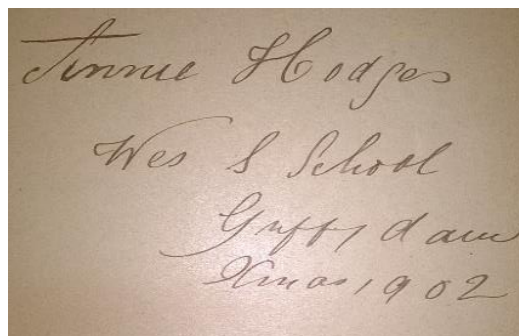 Annie Hodges
Wes S School
Griffydam
Xmas 1902